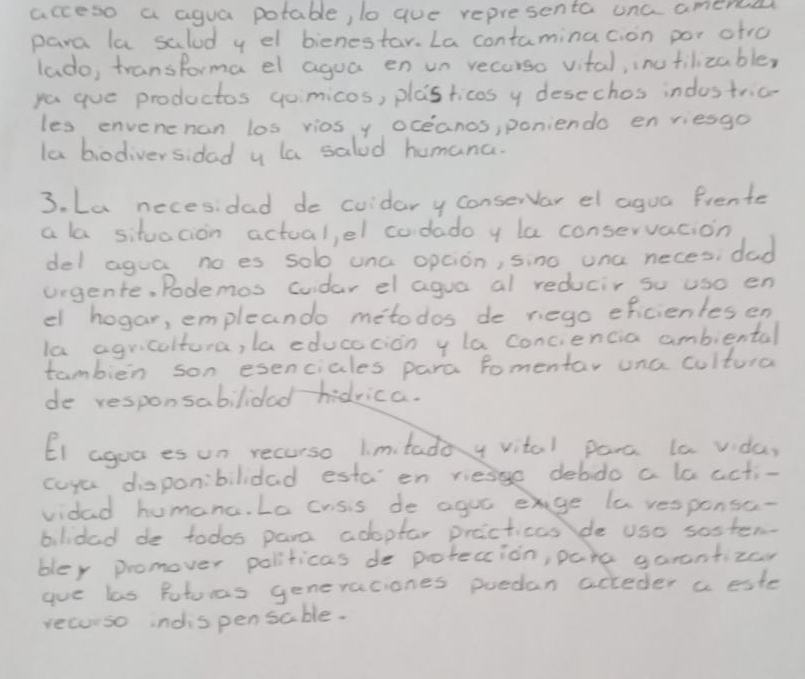 acceso a agua potable, lo que representa una amenaza
para la salud y el bienestar. La contaminación por otro
lado, transforma el agua en un recurso vital, inutilizable,
ya que productos químicos, plásticos y desechos industria-
les envenenan los ríos y océanos, poniendo en riesgo
la biodiversidad y la salud humana.
3. La necesidad de cuidar y conservar el agua frente
a la situación actual, el cuidado y la conservación
del agua no es solo una opción, sino una necesidad
urgente. Podemos cuidar el agua al reducir su uso en
el hogar, empleando métodos de riego eficientes en
la agricultura, la educación y la conciencia ambiental
tambien son esenciales para fomentar una cultura
de responsabilidad hidrica.
El agua es un recurso limitado y vital para la vida,
cuya disponibilidad está en riesgo debido a la acti-
vidad humana. La crisis de agua exige la responsa-
bilidad de todos para adoptar prácticas de uso sosten-
ble y promover políticas de protección, para garantizar
que las futuras generaciones puedan acceder a este
recurso indispensable.